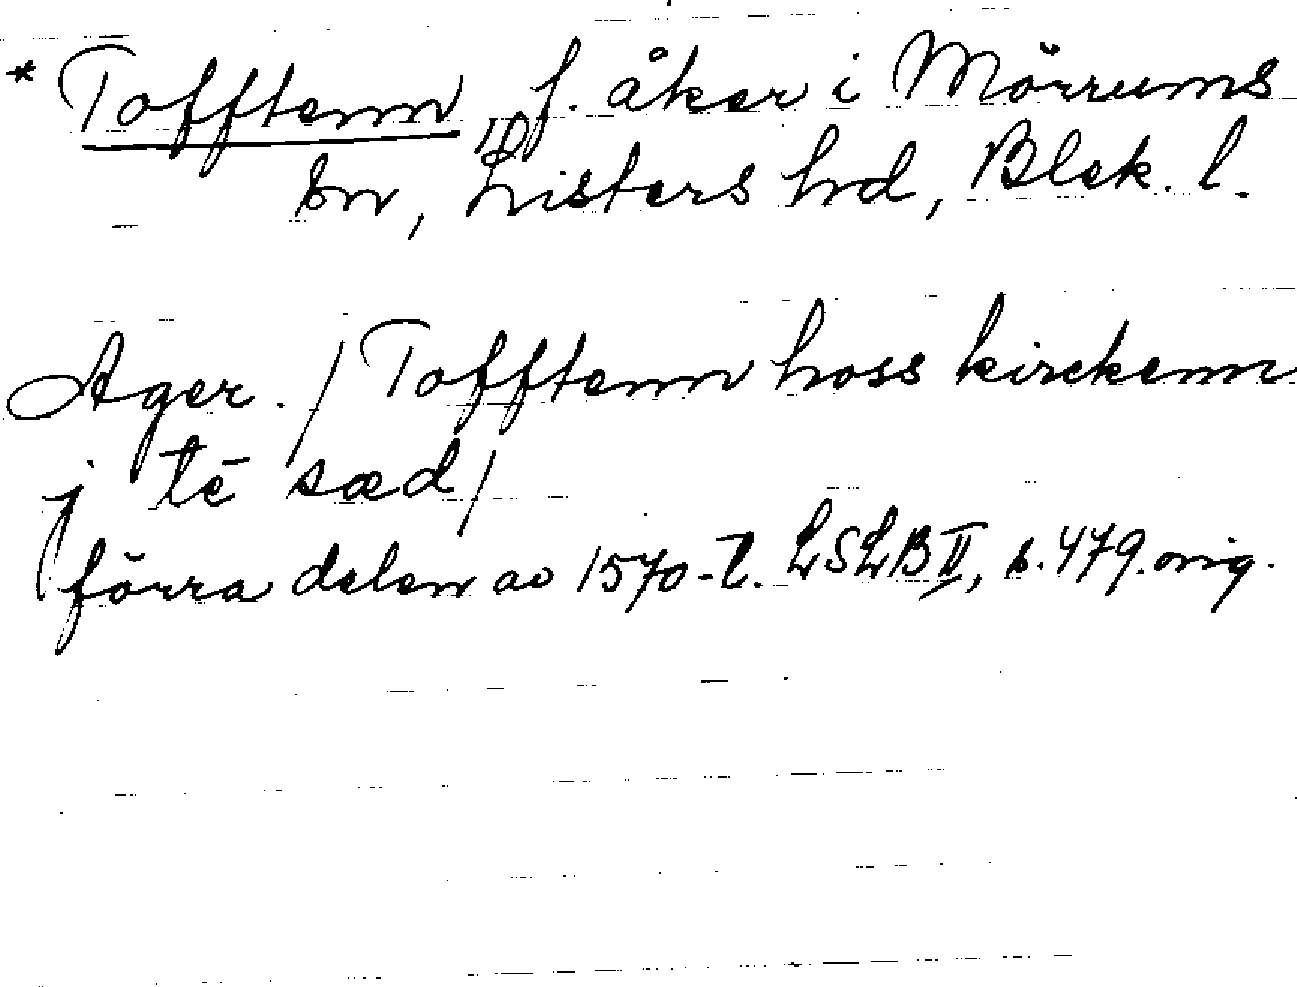 * Tofftenn f. åker i Mörrums
sn, Listers hd, Blek. l.
Ager. / Tofftenn hoss kirckenn
j tē sæd /
förra delen av 1570-t. LSLB II, s. 479. orig.